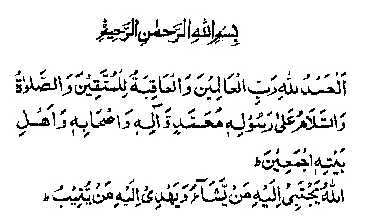 بِسْمِ اللهِ الرَّحْمٰنِ الرَّحِيْمِ
اَلْحَمْدُ للهِ رَبِّ الْعَالَمِيْنَ وَالْعَاقِبَةُ لِلْمُتَّقِيْنَ وَالصَّلٰوةُ
وَالسَّلَامُ عَلٰى رَسُوْلِهٖ مُحَمَّدٍ وَّاٰلِهٖ وَاَصْحَابِهٖ وَاَهْلِ
بَيْتِهٖ اَجْمَعِيْنَ ط
اَللهُ يَجْتَبِىْ اِلَيْهِ مَنْ يَّشَآءُ وَيَهْدِىْ اِلَيْهِ مَنْ يُّنِيْبُ ط